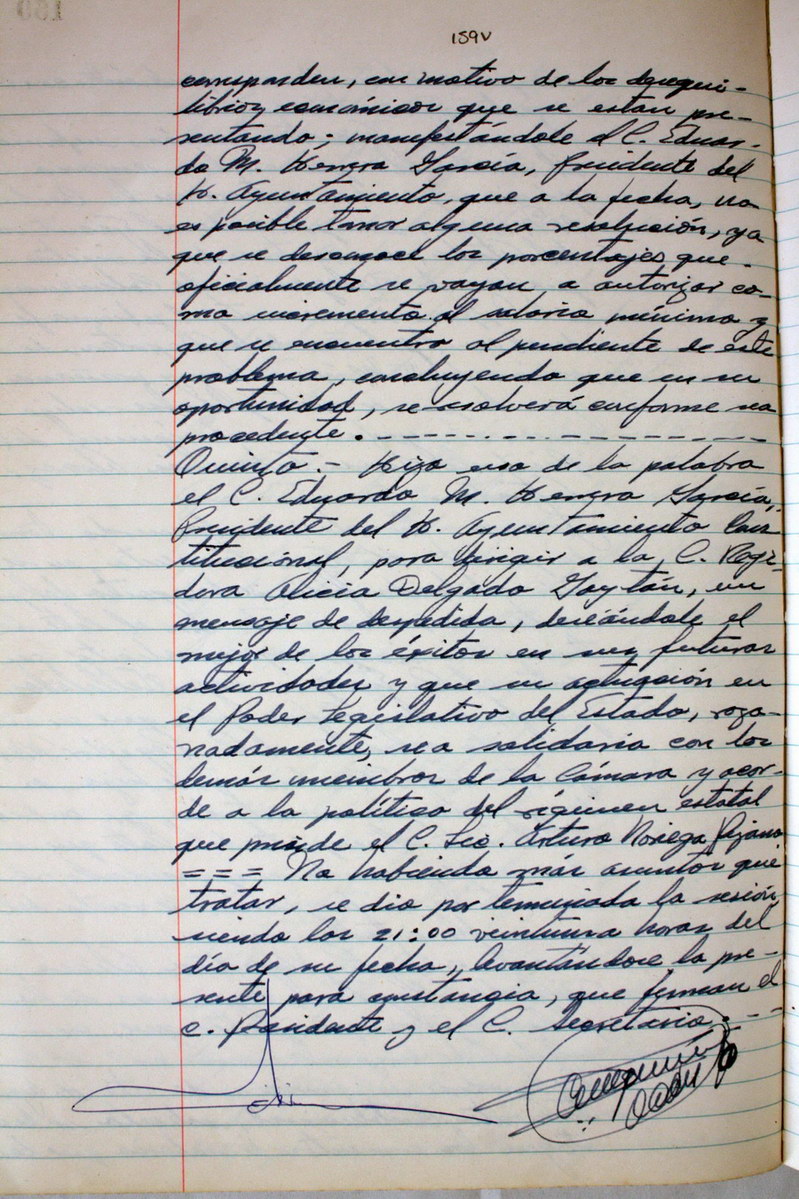 159v
corresponden, con motivo de los desequi-
librios económicos que se estan pre-
sentando; manifestándole el C. Eduar-
do M. Herrera García, Presidente del
H. Ayuntamiento, que a la fecha, no
es posible tomar alguna resolución, ya
que se desconoce los porcentajes que
oficialmente se vayan a autorizar co-
mo incremento al salario mínimo y
que se encuentra al pendiente de este
problema, concluyendo que en su
oportunidad, se resolverá conforme sea
procedente.
Quinto.- Hizo uso de la palabra
el C. Eduardo M. Herrera García,
Presidente del H. Ayuntamiento Cons
titucional, para dirigir a la C. Regi-
dora Alicia Delgado Gaytán, un
mensaje de despedida, deseándole el
mejor de los éxitos en sus futuras
actividades y que su actuación en
el Poder Legislativo del Estado, razo-
nadamente, sea solidaria con los
demás miembros de la Cámara y acor-
de a la política del régimen estatal
que preside el C. Lic. Arturo Noriega Pizano
=== No habiendo más asuntos que
tratar, se dio por terminada la sesión,
siendo las 21:00 veintiuna horas del
día de su fecha, levantándose la pre-
sente para constancia, que firman el
C. Presidente y el C. Secretario.---